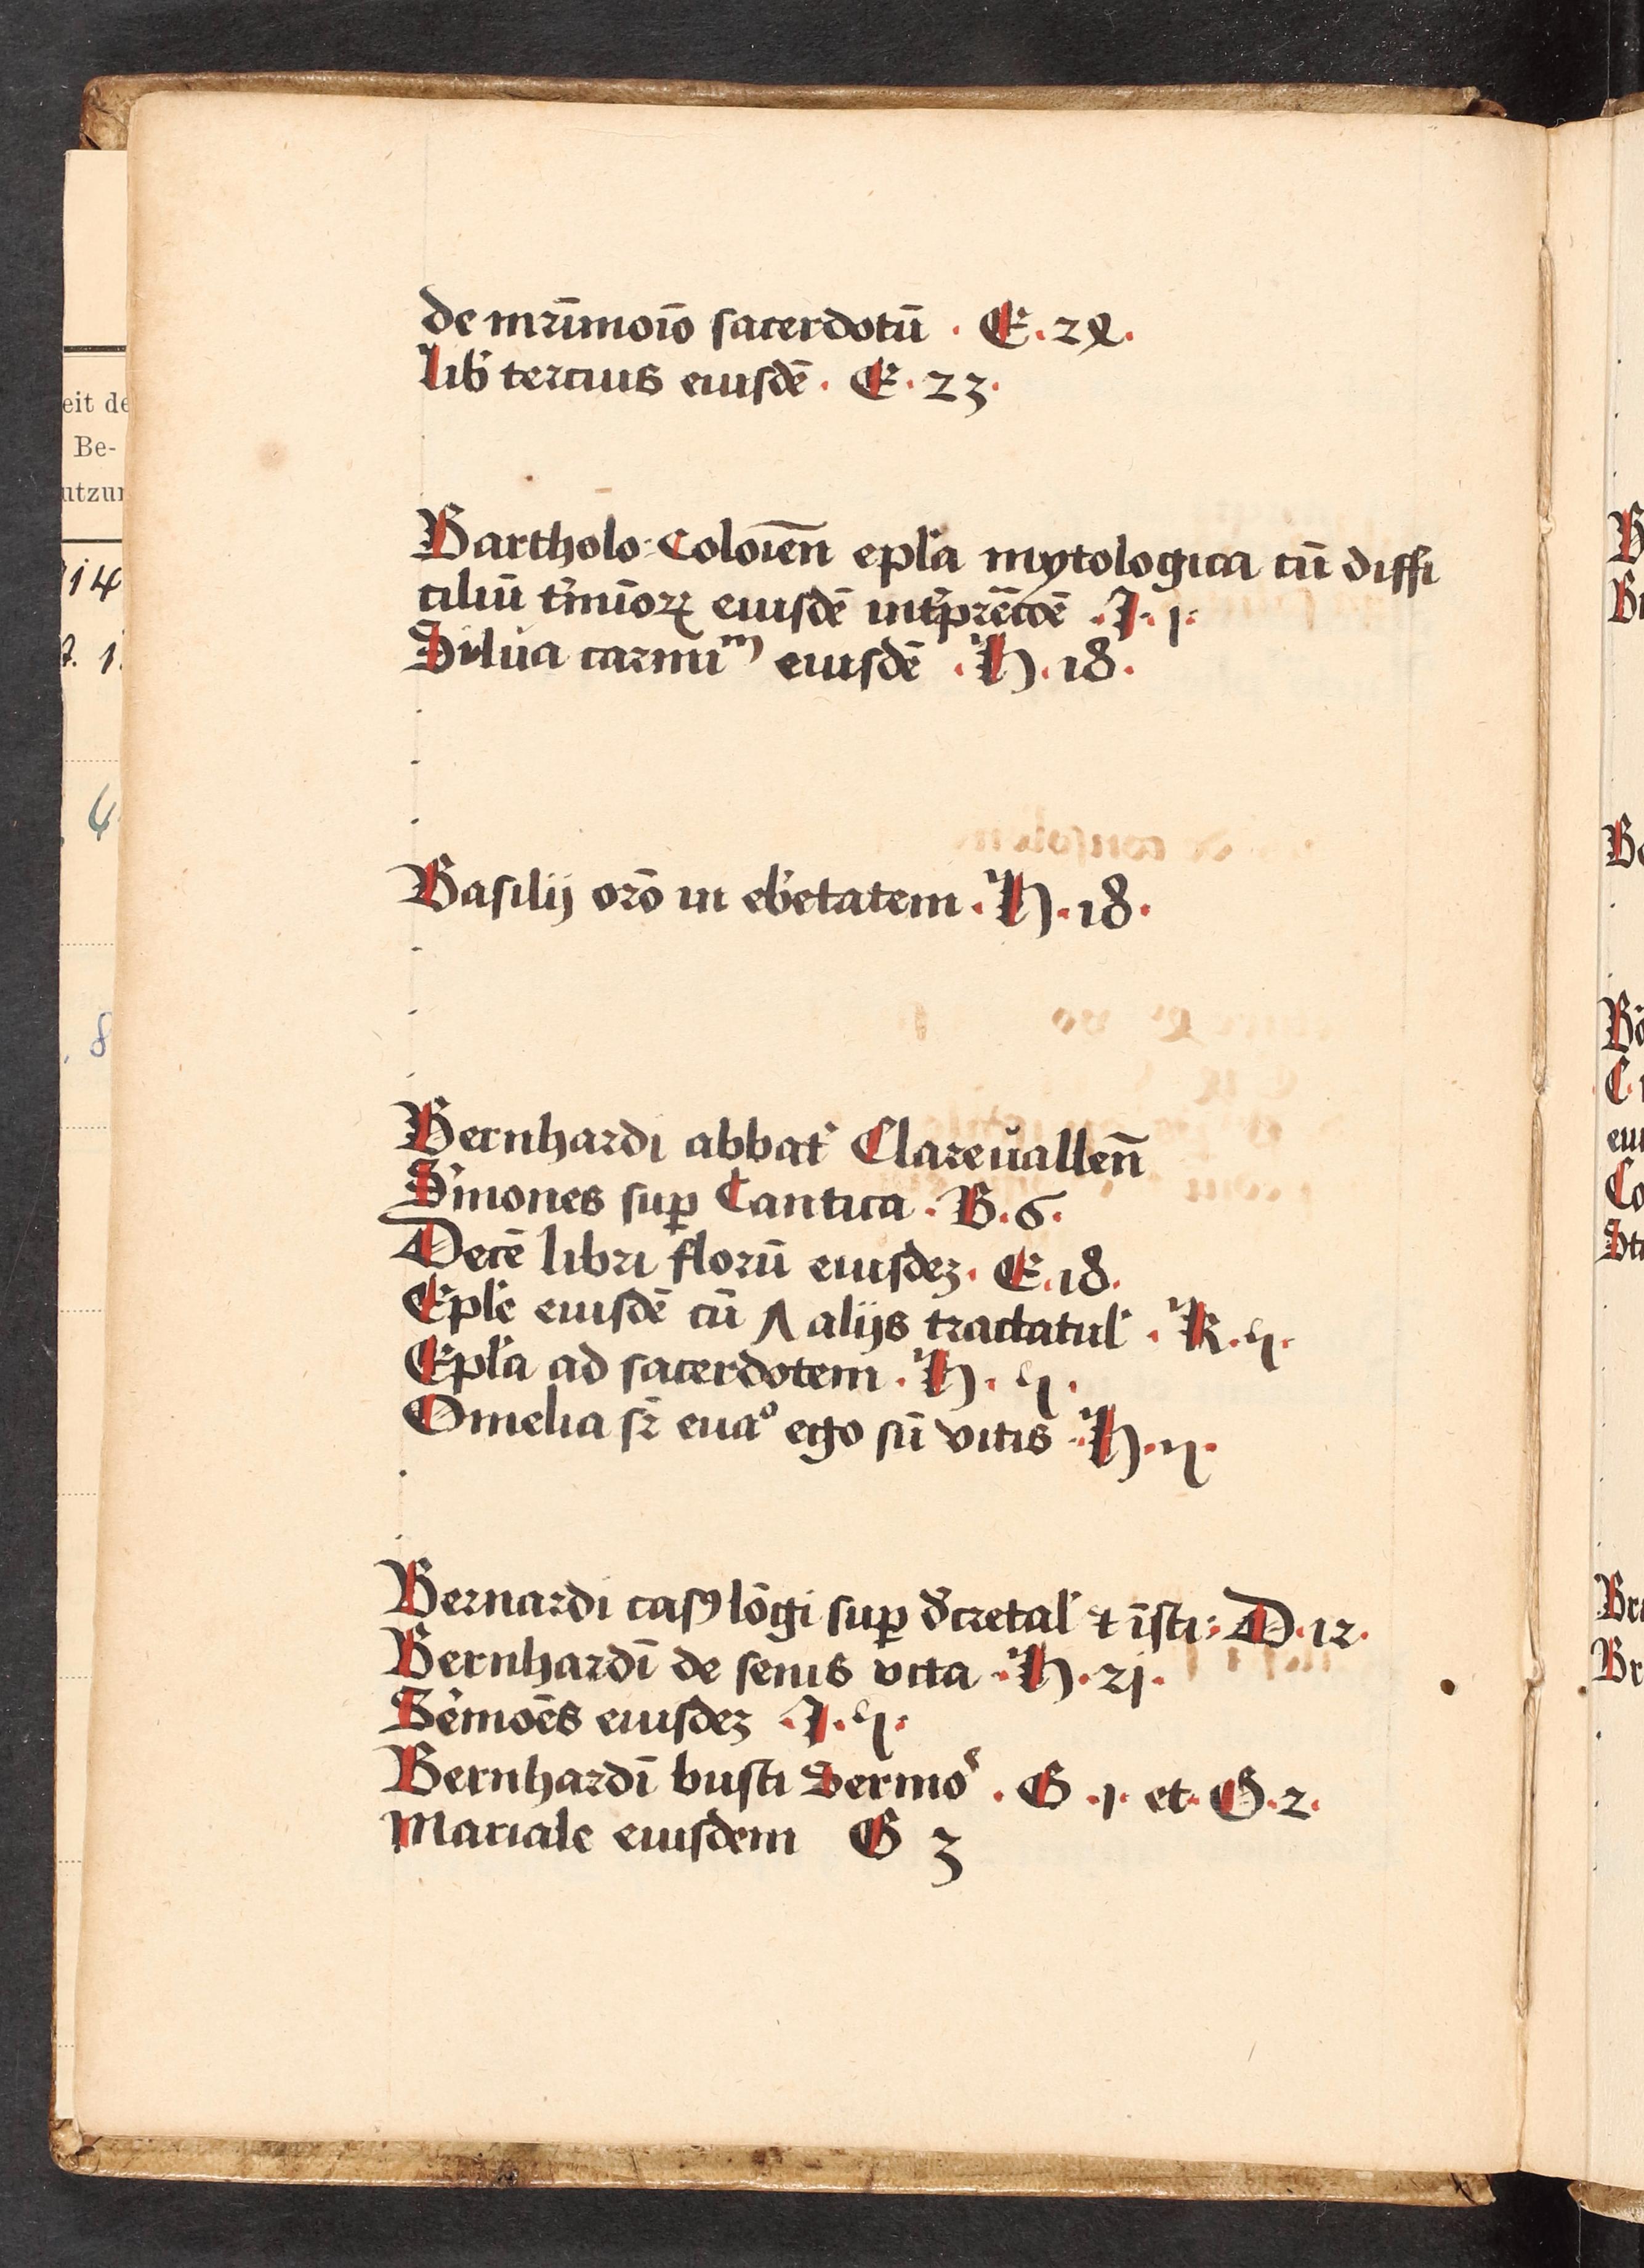 de mr̄imoīo sacerdotū . E . 24 .
Lib' tercius eiusdē . E . 23 .
Bartholo: Coloień ep̄la mytologica cū diffi
ciliū t'mīoꝝ eiusdē int'prēcōē . J . 1 .
Silua carmiᵐ eiusdē . H . 18 .
Basilij orō in eb'etatem . H . 18 .
Bernhardi abbat' Clareuallen̄
S'mones suꝑ Cantica . B . 6 .
Decē libri florū eiusdeꝫ . E . 18 .
Ep̄le eiusdē cū Λ alijs tractatul' . K . 7 .
Ep̄la ad sacerdotem . H . 7 .
Omelia sr̄ euāᵒ ego sū vitis . H . 7 .
Bernardi casꝰ lōgi suꝑ d'cretal' ⁊ īsti: D . 12 .
Bernhardī de senis vita . H . 21 .
Sẽmoēs eiusdeꝫ . J . 7 .
Bernhardī busti Sermoˢ . G . 1 . et . G . 2 .
Mariale eiusdem G 3
eit de
Be-
utzun
14
1.
6
8